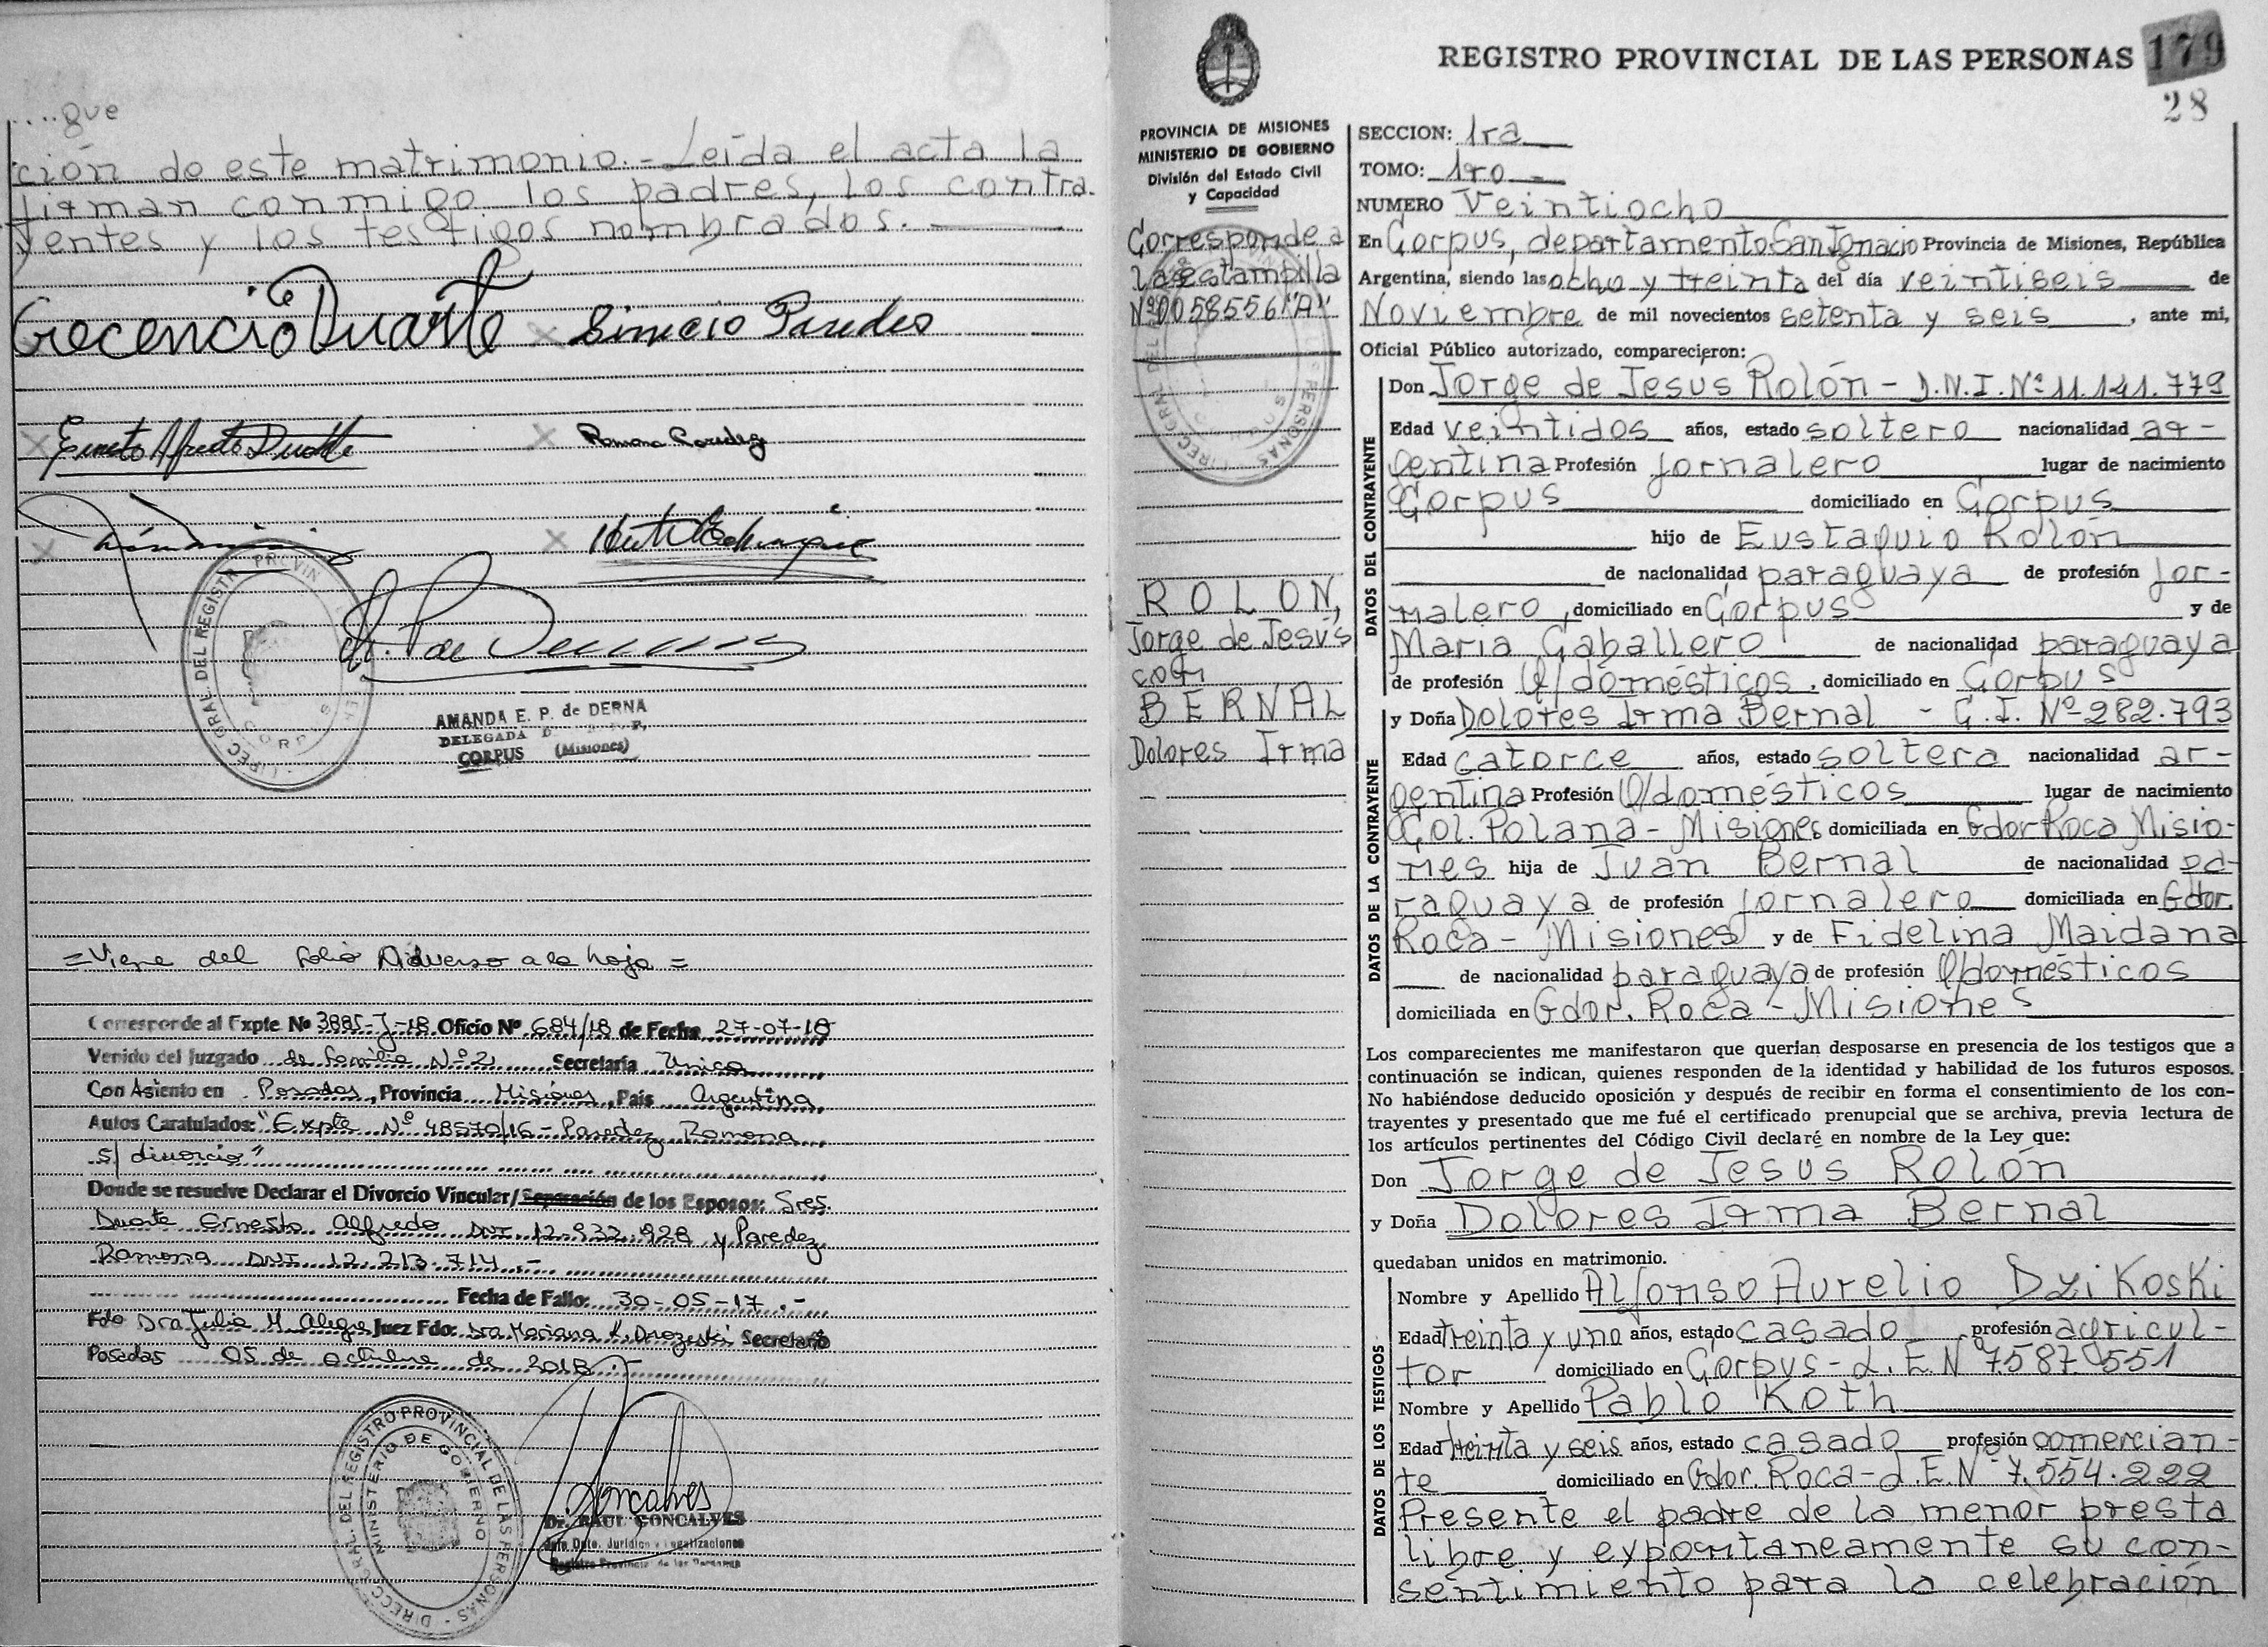 ....que
ción de este matrimonio.- Leída el acta la
firman conmigo los padres, los contra-
yentes y los testigos nombrados.
Crecencio Duarte
Simecio Paredes
Ernesto Alfredo Duarte
Ramona Paredez
AMANDA E. P. de DERNA
DELEGADA
CORPUS (Misiones)
=Viene del folio Adverso a la hoja=
Corresponde al Expte Nº 3885-J-18 Oficio Nº 684/18 de Fecha 27-07-18
Venido del Juzgado de Familia Nº 2 Secretaría Unica
Con Asiento en Posadas, Provincia Misiones, País Argentina
Autos Caratulados: "Expte Nº 48570/16 - Paredez Ramona
s/ divorcio"
Donde se resuelve Declarar el Divorcio Vincular/Separación de los Esposos: Sres.
Duarte Ernesto Alfredo DNI 12.932.928 y Paredez
Ramona DNI 12.213.714.-
Fecha de Fallo: 30-05-17.-
Fdo Dra Julia M. Alegre Juez Fdo: Dra Mariana K. Drozeski Secretario
Posadas 05 de octubre de 2018.-
DIRECC. GRAL. DEL REGISTRO PROVINCIAL DE LAS PERSONAS
MINISTERIO DE GOBIERNO
Dr. RAUL GONCALVES
Jefe Dpto. Jurídico y Legalizaciones
Registro Provincial de las Personas
REGISTRO PROVINCIAL DE LAS PERSONAS 179
28
PROVINCIA DE MISIONES
MINISTERIO DE GOBIERNO
División del Estado Civil
y Capacidad
Corresponde a
la estampilla
Nº 0058556 "A"
ROLON,
Jorge de Jesús
con
BERNAL
Dolores Irma
SECCION: 1ra
TOMO: 1ro
NUMERO Veintiocho
En Corpus, departamento San Ignacio Provincia de Misiones, República
Argentina, siendo las ocho y treinta del día veintiseis de
Noviembre de mil novecientos setenta y seis, ante mi,
Oficial Público autorizado, comparecieron:
DATOS DEL CONTRAYENTE
Don Jorge de Jesus Rolón - D.N.I. Nº 11.141.779
Edad veintidos años, estado soltero nacionalidad ar-
gentina Profesión jornalero lugar de nacimiento
Corpus domiciliado en Corpus
hijo de Eustaquio Rolón
de nacionalidad paraguaya de profesión jor-
nalero, domiciliado en Corpus y de
Maria Caballero de nacionalidad paraguaya
de profesión Q/domésticos, domiciliado en Corpus
DATOS DE LA CONTRAYENTE
y Doña Dolores Irma Bernal - C.I. Nº 282.793
Edad catorce años, estado soltera nacionalidad ar-
gentina Profesión Q/domésticos lugar de nacimiento
Col. Polana - Misiones domiciliada en Gdor Roca Misio-
nes hija de Juan Bernal de nacionalidad pa-
raguaya de profesión jornalero domiciliada en Gdor.
Roca - Misiones y de Fidelina Maidana
de nacionalidad paraguaya de profesión Q/domésticos
domiciliada en Gdor. Roca - Misiones
Los comparecientes me manifestaron que querían desposarse en presencia de los testigos que a
continuación se indican, quienes responden de la identidad y habilidad de los futuros esposos.
No habiéndose deducido oposición y después de recibir en forma el consentimiento de los con-
trayentes y presentado que me fué el certificado prenupcial que se archiva, previa lectura de
los artículos pertinentes del Código Civil declaré en nombre de la Ley que:
Don Jorge de Jesus Rolón
y Doña Dolores Irma Bernal
quedaban unidos en matrimonio.
DATOS DE LOS TESTIGOS
Nombre y Apellido Alfonso Aurelio Dzikoski
Edad treinta y uno años, estado casado profesión agricul-
tor domiciliado en Corpus - L.E. Nº 7587.551
Nombre y Apellido Pablo Koth
Edad treinta y seis años, estado casado profesión comercian-
te domiciliado en Gdor. Roca - L.E. Nº 7.554.222
Presente el padre de la menor presta
libre y expontaneamente su con-
sentimiento para la celebración